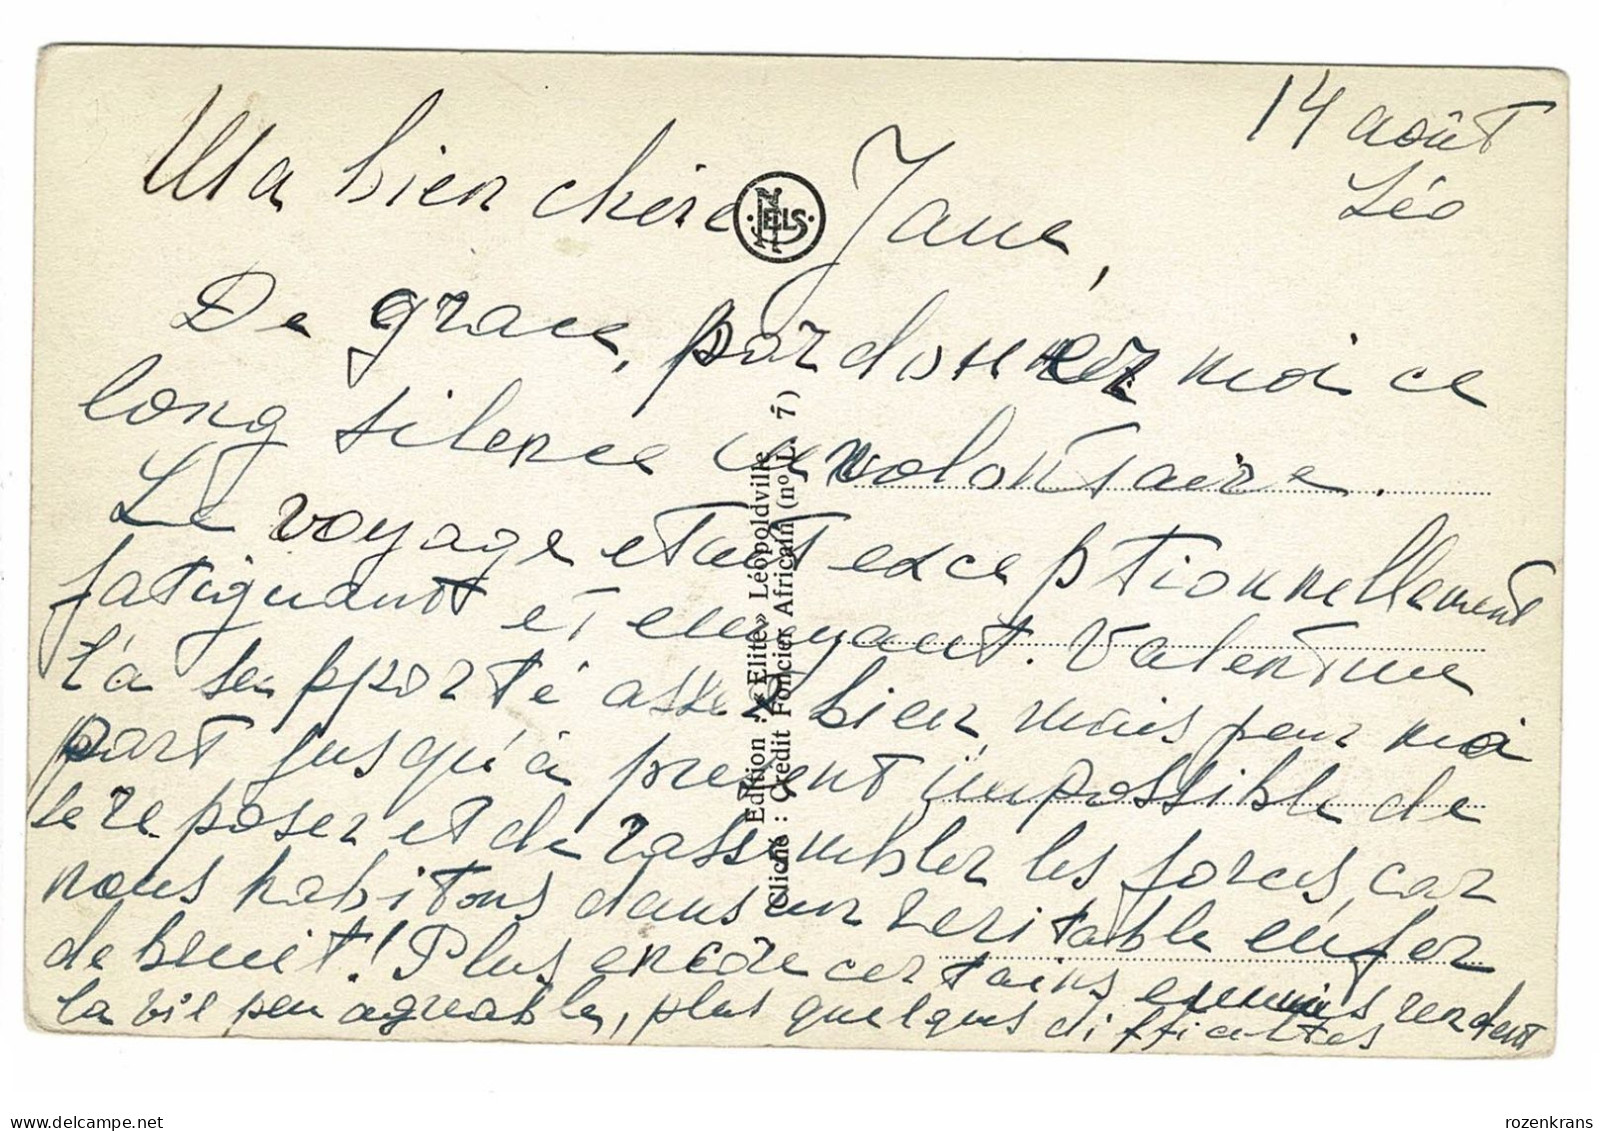 14 août
Léo
Ma bien chère Jane,
De grace, pardonnez moi ce
long silence involontaire.
Le voyage etait exceptionnellement
fatiguant et ennuyant. Valentine
l'a supporté assez bien, mais pour moi
part jusqu'à present impossible de
se reposer et de rassembler les forces, car
nous habitons dans un veritable enfer
de bruit! Plus encore certains ennuis rendent
la vie peu agreable, plus quelques difficultes
NELS
Edition : « Elite » Léopoldville
Cliché : Crédit Foncier Africain (no L. 7)
rozenkrans